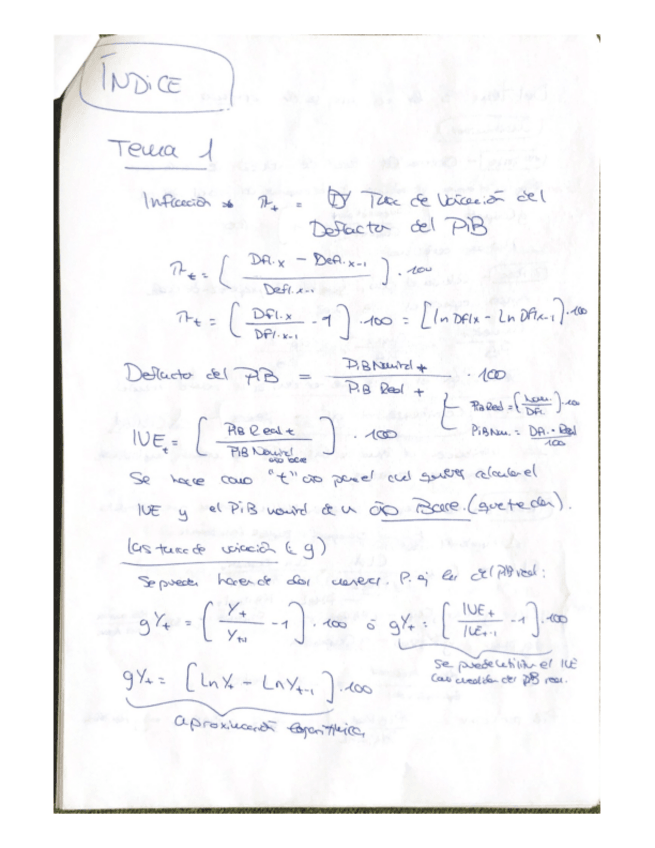 ÍNDICE
Tema 1
Inflación → π_t = Tasa de Variación del
Deflactor del PiB
π_t = ( (Dfl.x − Defl.x-1) / Defl.x-1 ) · 100
π_t = ( Dfl.x / Dfl.x-1 − 1 ) · 100 = [ln Dflx − Ln Dflx-1] · 100
Deflactor del PiB = PiB Nominal t / PiB Real t · 100
PiB Real = ( Nom. / Dfl. ) · 100
PiB Nom. = Dfl. · Real / 100
IVE_t = [ PiB Real t / PiB Nominal año base ] · 100
Se hace como "t" año para el cual quieres calcular el
IVE y el PiB nominal de un año Base. (que te dan).
Las tasas de variación (g)
Se puede hacer de dos maneras. P. ej las del PIB real:
gY_t = ( Y_t / Y_t-1 − 1 ] · 100 ó gY_t = [ IVE_t / IVE_t-1 − 1 ] · 100
se puede utilizar el IVE
como medida del PIB real.
gY_t = [ Ln Y_t − Ln Y_t-1 ] · 100
aproximación logarítmica.